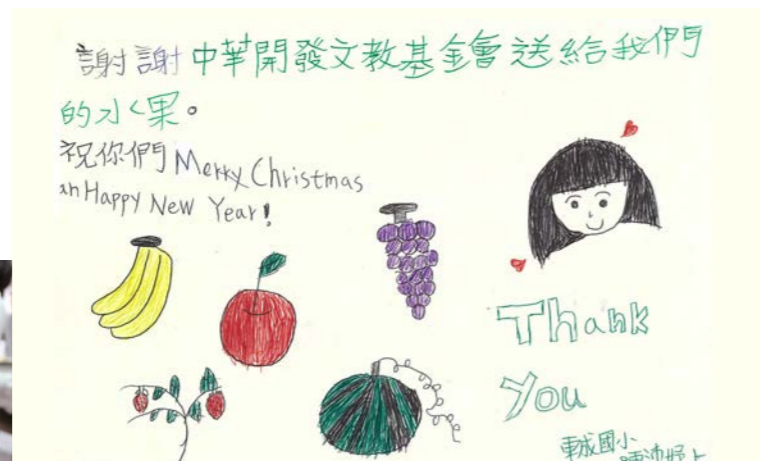 謝謝中華開發文教基金會送給我們
的水果。
祝你們 Merry Christmas
an Happy New Year!
Thank
You
東成國小
陳沛妤上